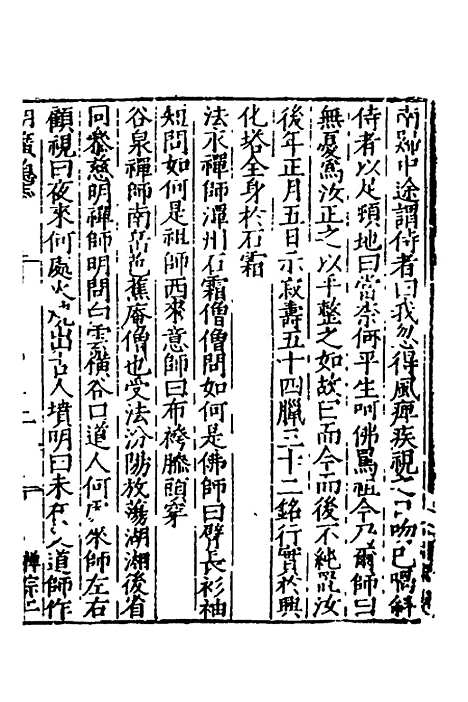 南歸中途謂侍者曰我忽得風痺疾視之口吻已喎斜
侍者以足頓地曰當柰何平生呵佛罵祖今乃爾師曰
無憂為汝正之以手整之如故曰而今而後不純汝
後年正月五日示寂壽五十四臘三十二銘行實於興
化塔全身於石霜
法永禪師潭州石霜僧僧問如何是佛師曰臂長衫袖
短問如何是祖師西來意師曰布袴膝頭穿
谷泉禪師南岳芭蕉庵僧也受法汾陽放蕩湖湘後省
同參慈明禪師明問白雲橫谷口道人何處來師左右
顧視曰夜來何處火燒出古人墳明曰未在更道師作
禪宗二